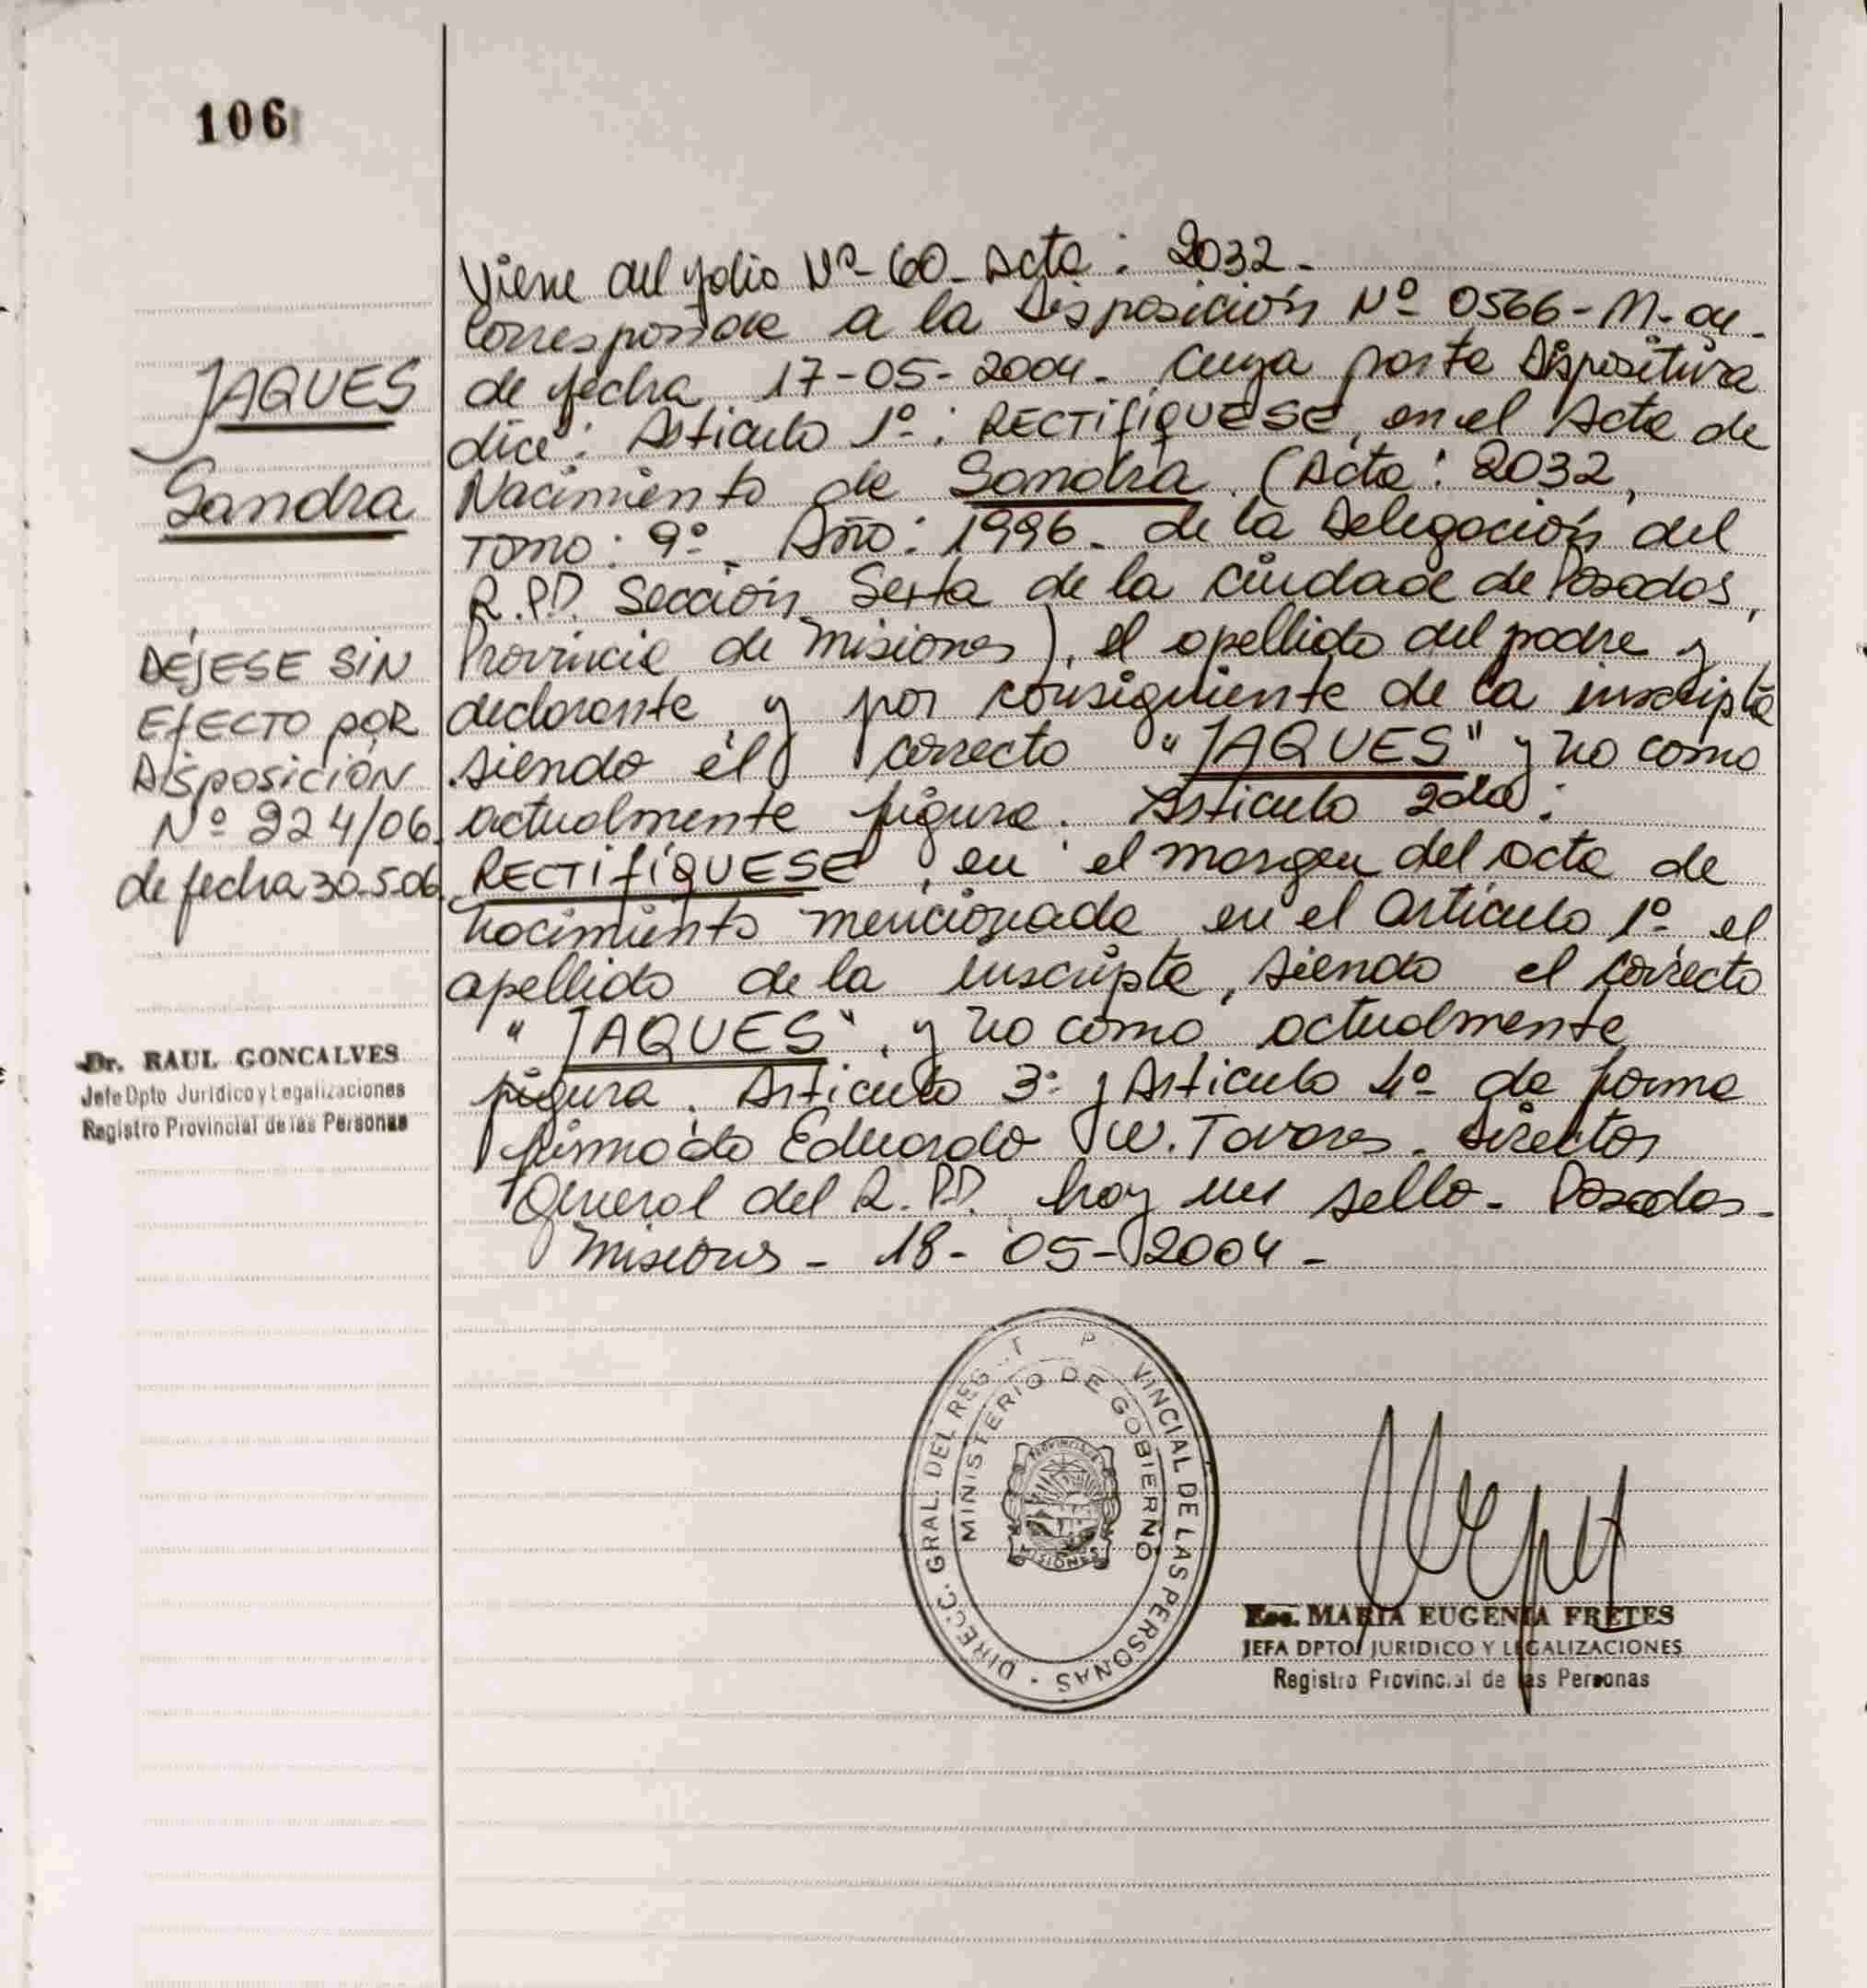 106
JAQUES
Sandra
DÉJESE SIN
EFECTO POR
DISPOSICIÓN
Nº 224/06.
de fecha 30-5-06.
Dr. RAUL GONCALVES
Jefe Dpto Jurídico y Legalizaciones
Registro Provincial de las Personas
Viene del folio Nº 60 - Acta: 2032 -
Corresponde a la Disposición Nº 0566-M-04-
de fecha 17-05-2004 - Cuya parte Dispositiva
dice: Artículo 1º: RECTIFIQUESE, en el Acta de
Nacimiento de Sandra (Acta: 2032,
Tomo: 9º - Año: 1996 - de la Delegación del
R.P.P. Sección Sexta de la Ciudad de Posadas,
Provincia de Misiones), el apellido del padre y
declarante y por consiguiente de la inscripta
siendo el correcto "JAQUES" y no como
actualmente figura. Artículo 2do:
RECTIFÍQUESE, en el margen del acta de
nacimiento mencionada en el artículo 1º el
apellido de la inscripta, siendo el correcto
"JAQUES", y no como actualmente
figura. Artículo 3º y Artículo 4º de forma
firmado Eduardo W. Tavares - Director
General del R.P.P. hay un sello - Posadas -
Misiones - 18-05-2004 -
DIRECC. GRAL. DEL REG VINCIAL DE LAS PERSONAS
MINISTERIO DE GOBIERNO
PROVINCIA
MISIONES
Esc. MARIA EUGENIA FRETES
JEFA DPTO. JURIDICO Y LEGALIZACIONES
Registro Provincial de las Personas